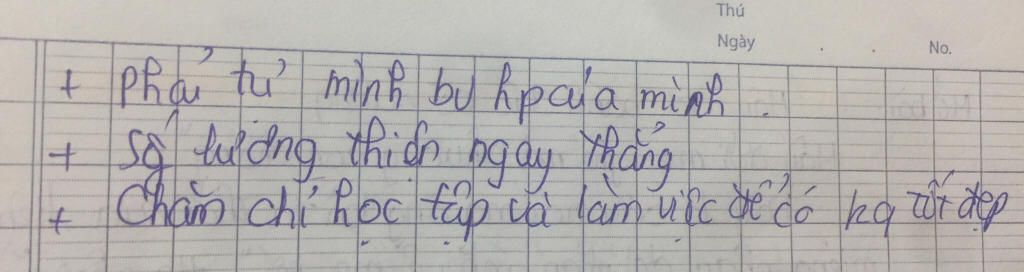 Thứ
Ngày . . No.
+ phải tự mình bv hp của mình.
+ Số lượng thiện ngay thẳng
+ Chăm chỉ học tập và làm việc để có kq tốt đẹp